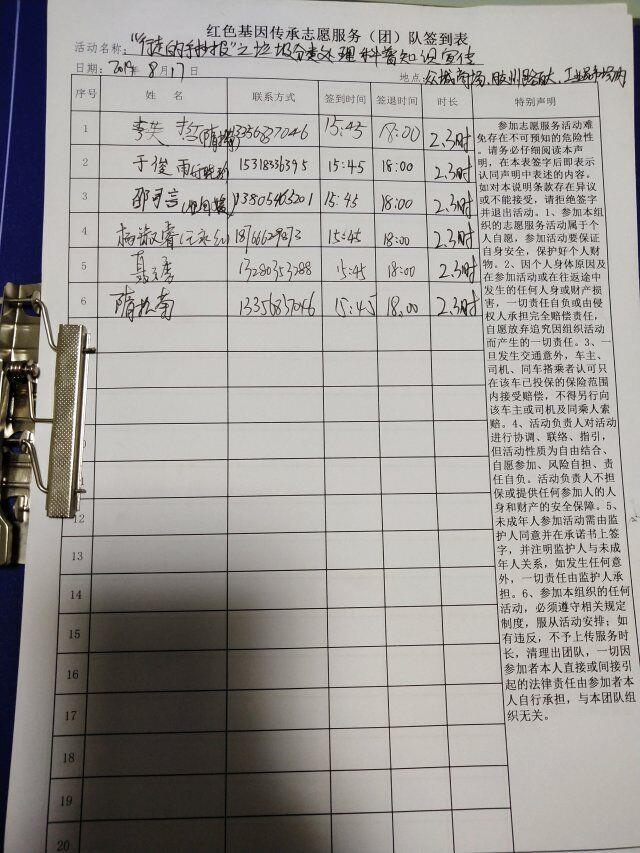 红色基因传承志愿服务（团）队签到表
活动名称：“行走的手抄报”之垃圾分类处理科普知识宣传
日期：2019年8月17日
地点：
序号 姓名 联系方式 签到时间 签退时间 时长 特别声明
1 15:45 18:00 2.3时
2 于俊 15318336395 15:45 18:00 2.3时
3 15:45 18:00 2.3时
4 15:45 18:00 2.3时
5 13280353288 15:45 18:00 2.3时
6 13356837046 15:45 18:00 2.3时
12
13
14
15
16
17
18
19
20
参加志愿服务活动难
免存在不可预知的危险性
。请务必仔细阅读本声
明，在本表签字后即表示
认同声明中表述的内容。
如对本说明条款存在异议
或不能接受，请拒绝签字
并退出活动。1、参加本组
织的志愿服务活动属于个
人自愿，参加活动要保证
自身安全，保护好个人财
物。2、因个人身体原因及
在参加活动或在往返途中
发生的任何人身或财产损
害，一切责任自负或由侵
权人承担完全赔偿责任，
自愿放弃追究因组织活动
而产生的一切责任。3、一
旦发生交通意外，车主、
司机、同车搭乘者认可只
在该车已投保的保险范围
内接受赔偿，不得另行向
该车主或司机及同乘人索
赔。4、活动负责人对活动
进行协调、联络、指引，
但活动性质为自由结合、
自愿参加、风险自担、责
任自负。活动负责人不担
保或提供任何参加人的人
身和财产的安全保障。5、
未成年人参加活动需由监
护人同意并在承诺书上签
字，并注明监护人与未成
年人关系，如发生任何意
外，一切责任由监护人承
担。6、参加本组织的任何
活动，必须遵守相关规定
制度，服从活动安排；如
有违反，不予上传服务时
长，清理出团队，一切因
参加者本人直接或间接引
起的法律责任由参加者本
人自行承担，与本团队组
织无关。